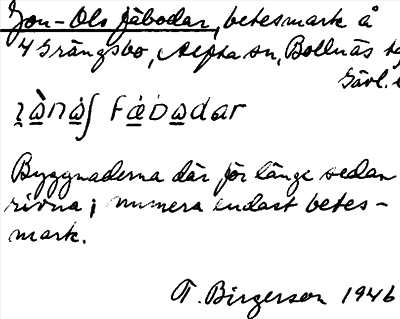 Jon-Ols fäbodar, betesmark å
4 Grängsbo, Alfta sn, Bollnäs
Gävl.
fä̀bὼdar
Byggnaderna där för länge sedan
rivna; numera endast betes-
mark.
T. Birgerson 1946